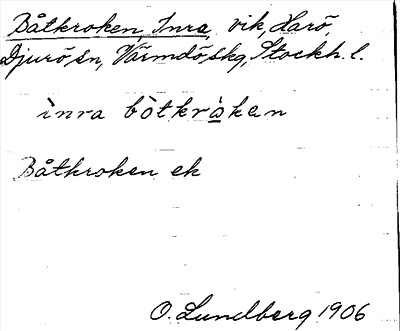 Båtkroken, Inra, vik, Harö,
Djurö sn, Värmdö skg, Stockh. l.
ìnra bòtkrå̀ken
Båtkroken ek
O. Lundberg 1906